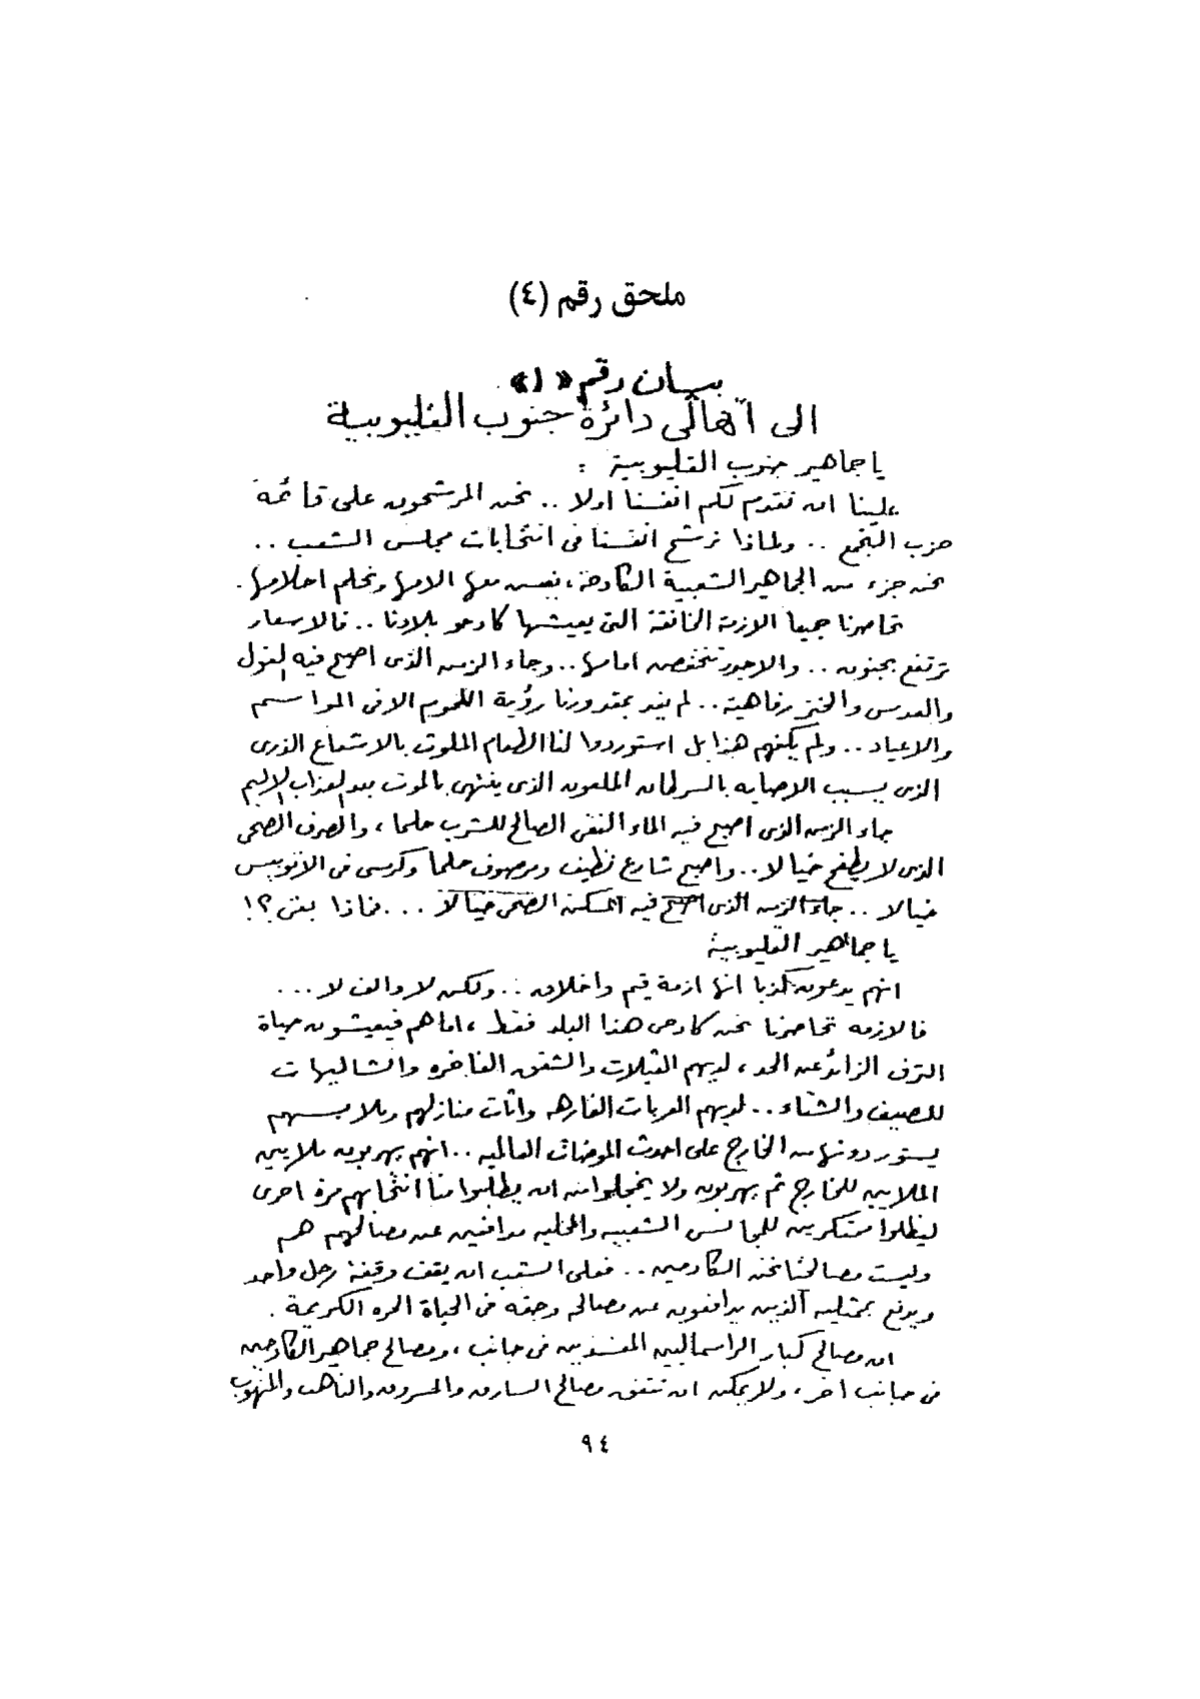 ملحق رقم (٤)
بيان رقم «١»
الى أهالى دائرة جنوب القليوبية
يا جماهير جنوب القليوبية :
علينا ان نقدم لكم انفسنا اولا .. نحن المرشحون على قائمة
حزب التجمع .. ولماذا نرشح انفسنا فى انتخابات مجلس الشعب ..
نحن جزء من الجماهير الشعبية الكادحة ، نعيش معها الامها ونحلم احلامها .
تحاصرنا جميعا الازمة الخانقة التى يعيشها كادحو بلادنا .. فالاسعار
ترتفع بجنون .. والاجور تنخفض امامها .. وجاء الزمن الذى اصبح فيه الفول
والعدس والخبز رفاهية .. لم يعد بمقدورنا رؤية اللحوم الا فى المواسم
والاعياد .. ولم يكفهم هذا بل استوردوا لنا الطعام الملوث بالاشعاع الذرى
الذى يسبب الاصابه بالسرطان الملعون الذى ينتهى بالموت بعد العذاب الاليم
جاء الزمن الذى اصبح فيه الماء النقى الصالح للشرب حلما ، والصرف الصحى
الذى لا يطفح خيالا .. واصبح شارع نظيف ومرصوف حلما وكرسى فى الاتوبيس
خيالا .. جاء الزمن الذى اصبح فيه المسكن الصحى خيالا ... فماذا بقى ؟!
يا جماهير القليوبية
انهم يدعون كذبا انها ازمة قيم واخلاق .. ولكن لا والف لا ...
فالازمه تحاصرنا نحن كادحى هذا البلد فقط ، اما هم فيعيشون حياة
الترف الزائد عن الحد ، لديهم الفيلات والشقق الفاخره والشاليهات
للصيف والشتاء .. لديهم العربات الفارهه واثاث منازلهم وملابسهم
يستوردونها من الخارج على احدث الموضات العالميه .. انهم يهربون ملايين
الملايين للخارج ثم يهربون ولا يخجلوا من ان يطلبوا منا انتخابهم مرة اخرى
ليظلوا محتكرين للمجالس الشعبيه والمحليه مدافعين عن مصالحهم هم
وليست مصالحنا نحن الكادحين .. فعلى الشعب ان يقف وقفة رجل واحد
ويدفع بممثليه الذين يدافعون عن مصالحه وحقه فى الحياة الحره الكريمة .
ان مصالح كبار الراسماليين المفسدين فى جانب ، ومصالح جماهير الكادحين
فى جانب اخر ، ولا يمكن ان تتفق مصالح السارق والمسروق والناهب والمنهوب
٩٤